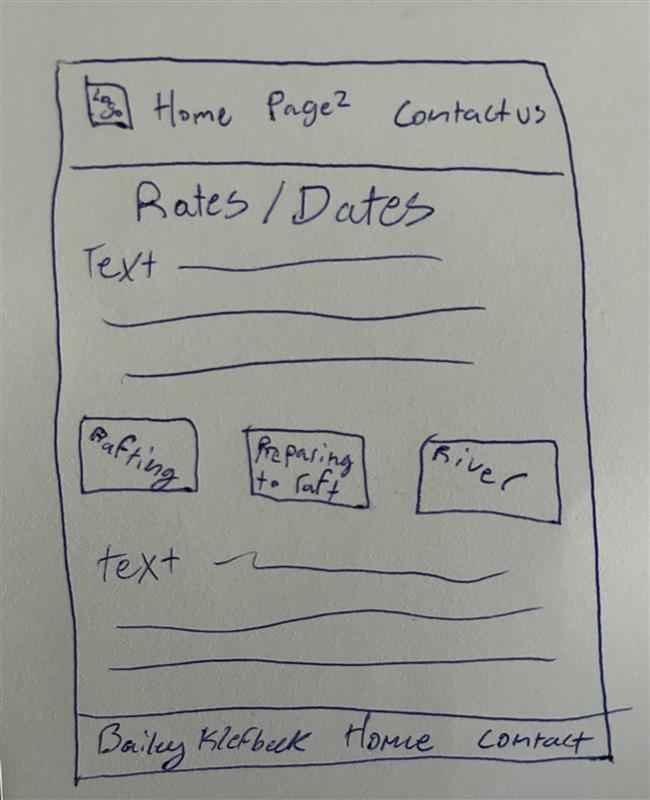 Logo Home Page2 Contact us
Rates / Dates
Text
Rafting
Preparing
to raft
River
text
Bailey Klefbeck Home Contact